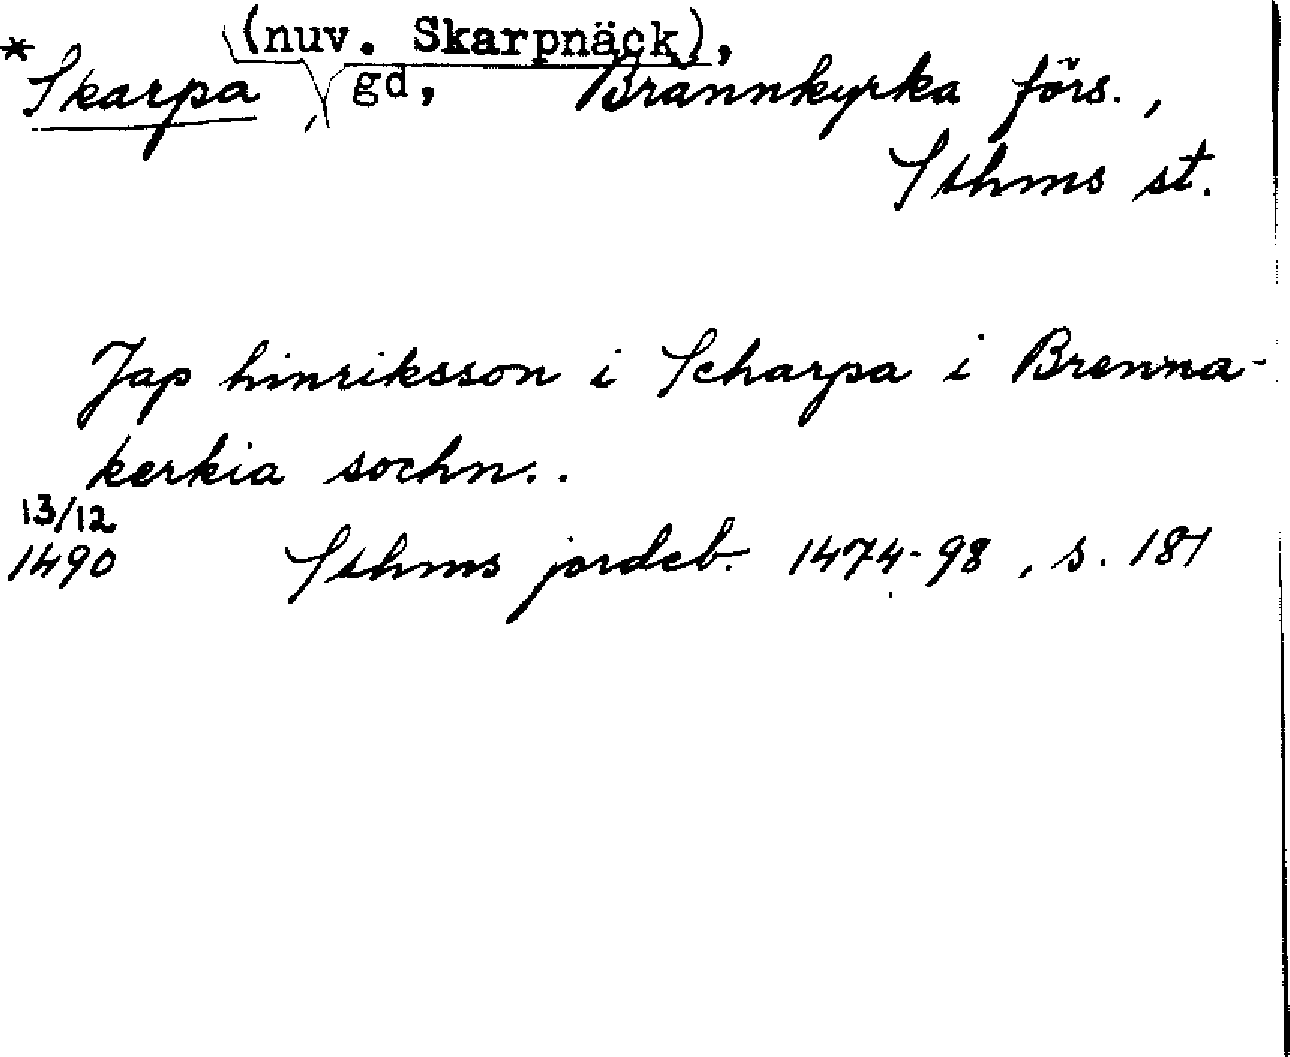 (nuv. Skarpnäck),
*Skarpa, gd, Brännkyrka förs.,
Sthms st.
Jap hinriksson i Scharpa i Brenna-
kerkia sochn..
13/12
1490 Sthms jordeb. 1474-98, s. 181